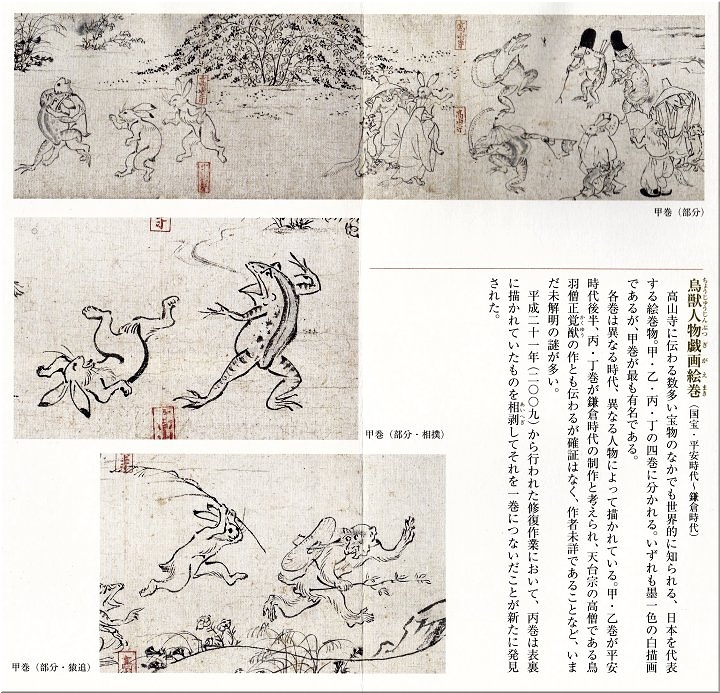 甲巻（部分）
鳥獣人物戯画絵巻（国宝・平安時代～鎌倉時代）
ちょうじゅうじんぶつぎがえまき
高山寺に伝わる数多い宝物のなかでも世界的に知られる、日本を代表
する絵巻物。甲・乙・丙・丁の四巻に分かれる。いずれも墨一色の白描画
であるが、甲巻が最も有名である。
各巻は異なる時代、異なる人物によって描かれている。甲・乙巻が平安
時代後半、丙・丁巻が鎌倉時代の制作と考えられ、天台宗の高僧である鳥
羽僧正覚猷の作とも伝わるが確証はなく、作者未詳であることなど、いま
かくゆう
だ未解明の謎が多い。
平成二十一年（二〇〇九）から行われた修復作業において、丙巻は表裏
に描かれていたものを相剥してそれを一巻につないだことが新たに発見
あいへぎ
された。
甲巻（部分・相撲）
甲巻（部分・猿追）
高山寺